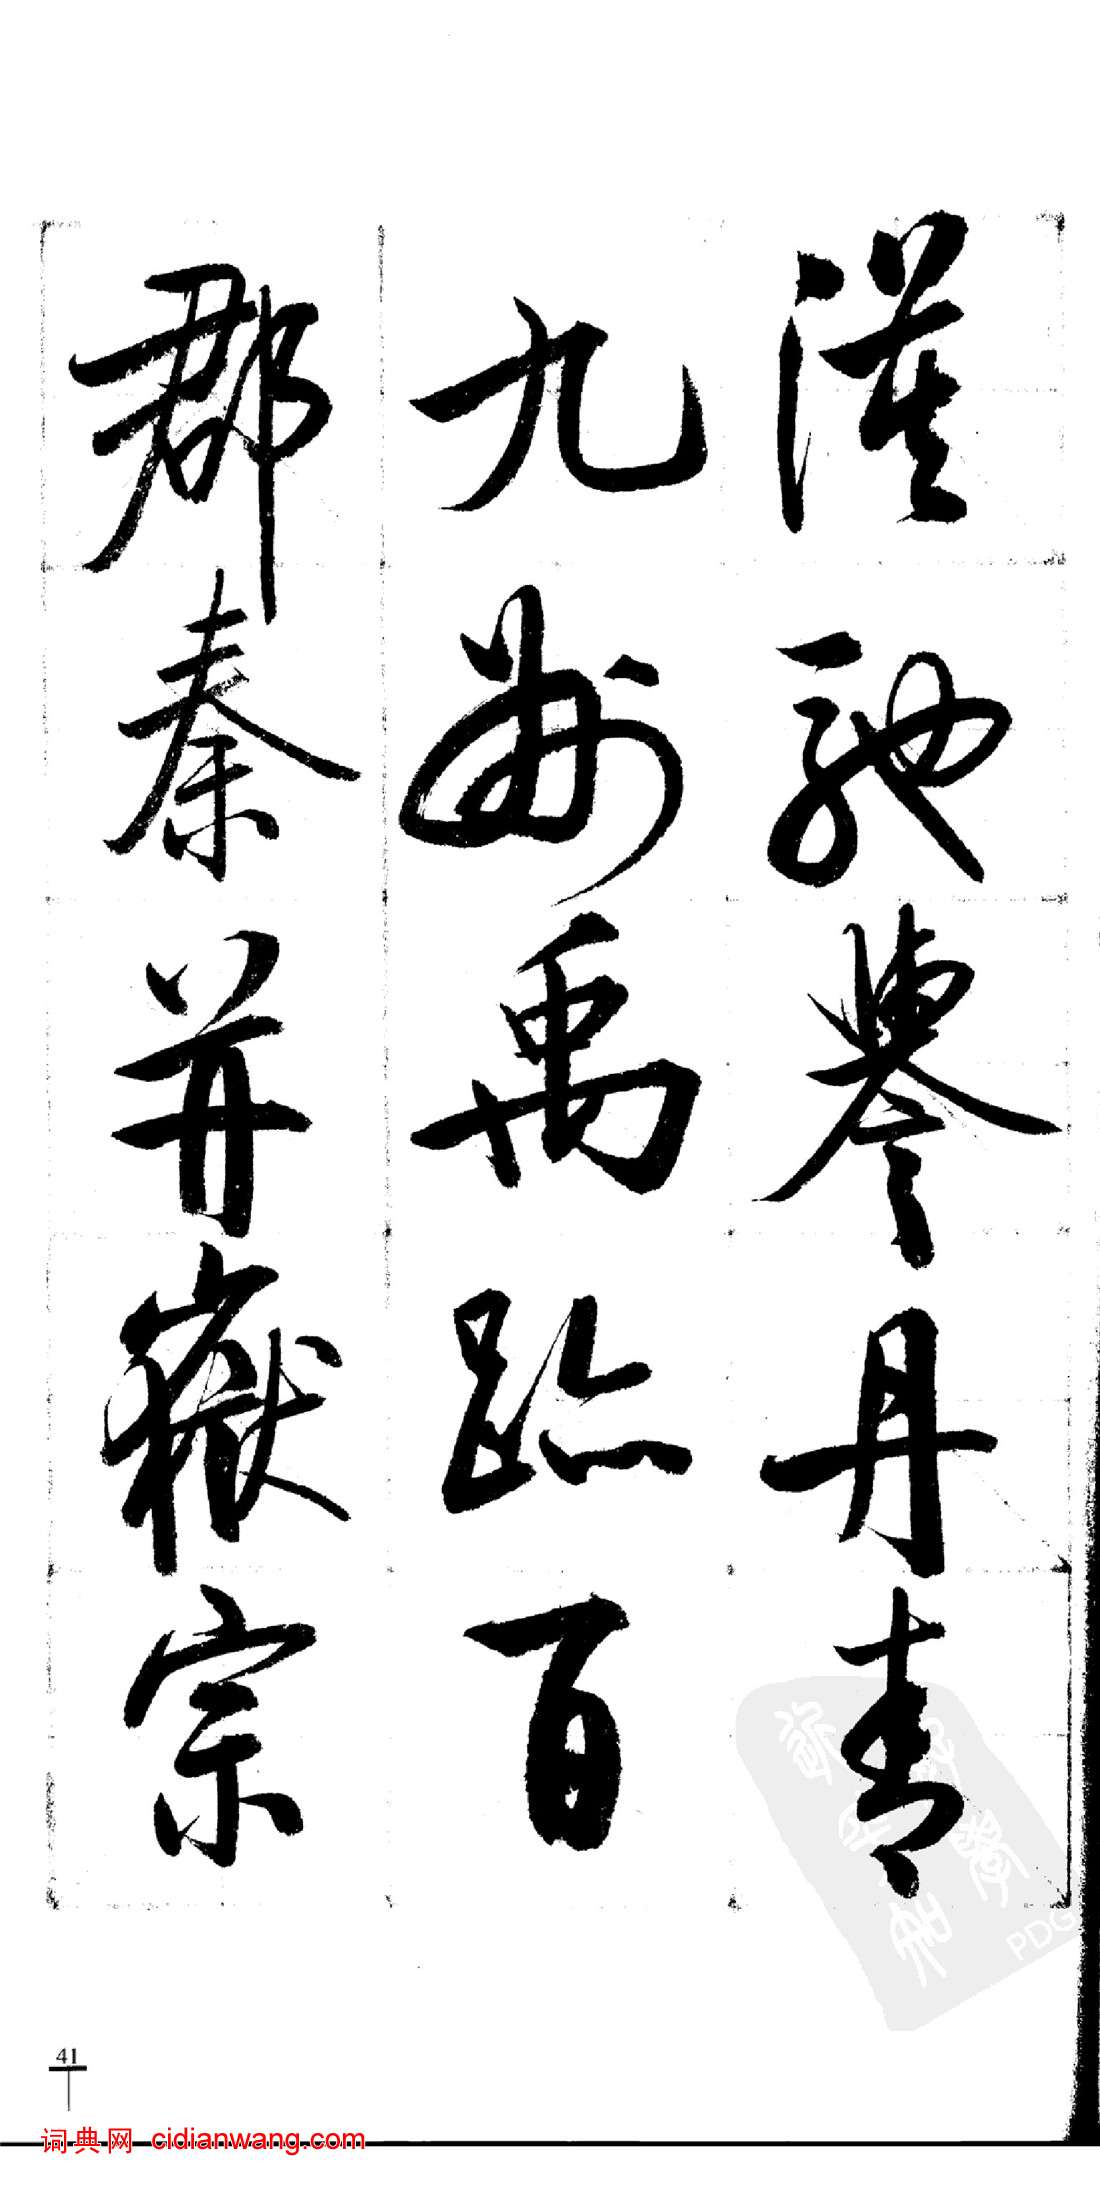 漠馳譽丹青
九州禹跡百
郡秦并嶽宗
41
词典网 cidianwang.com
PDG